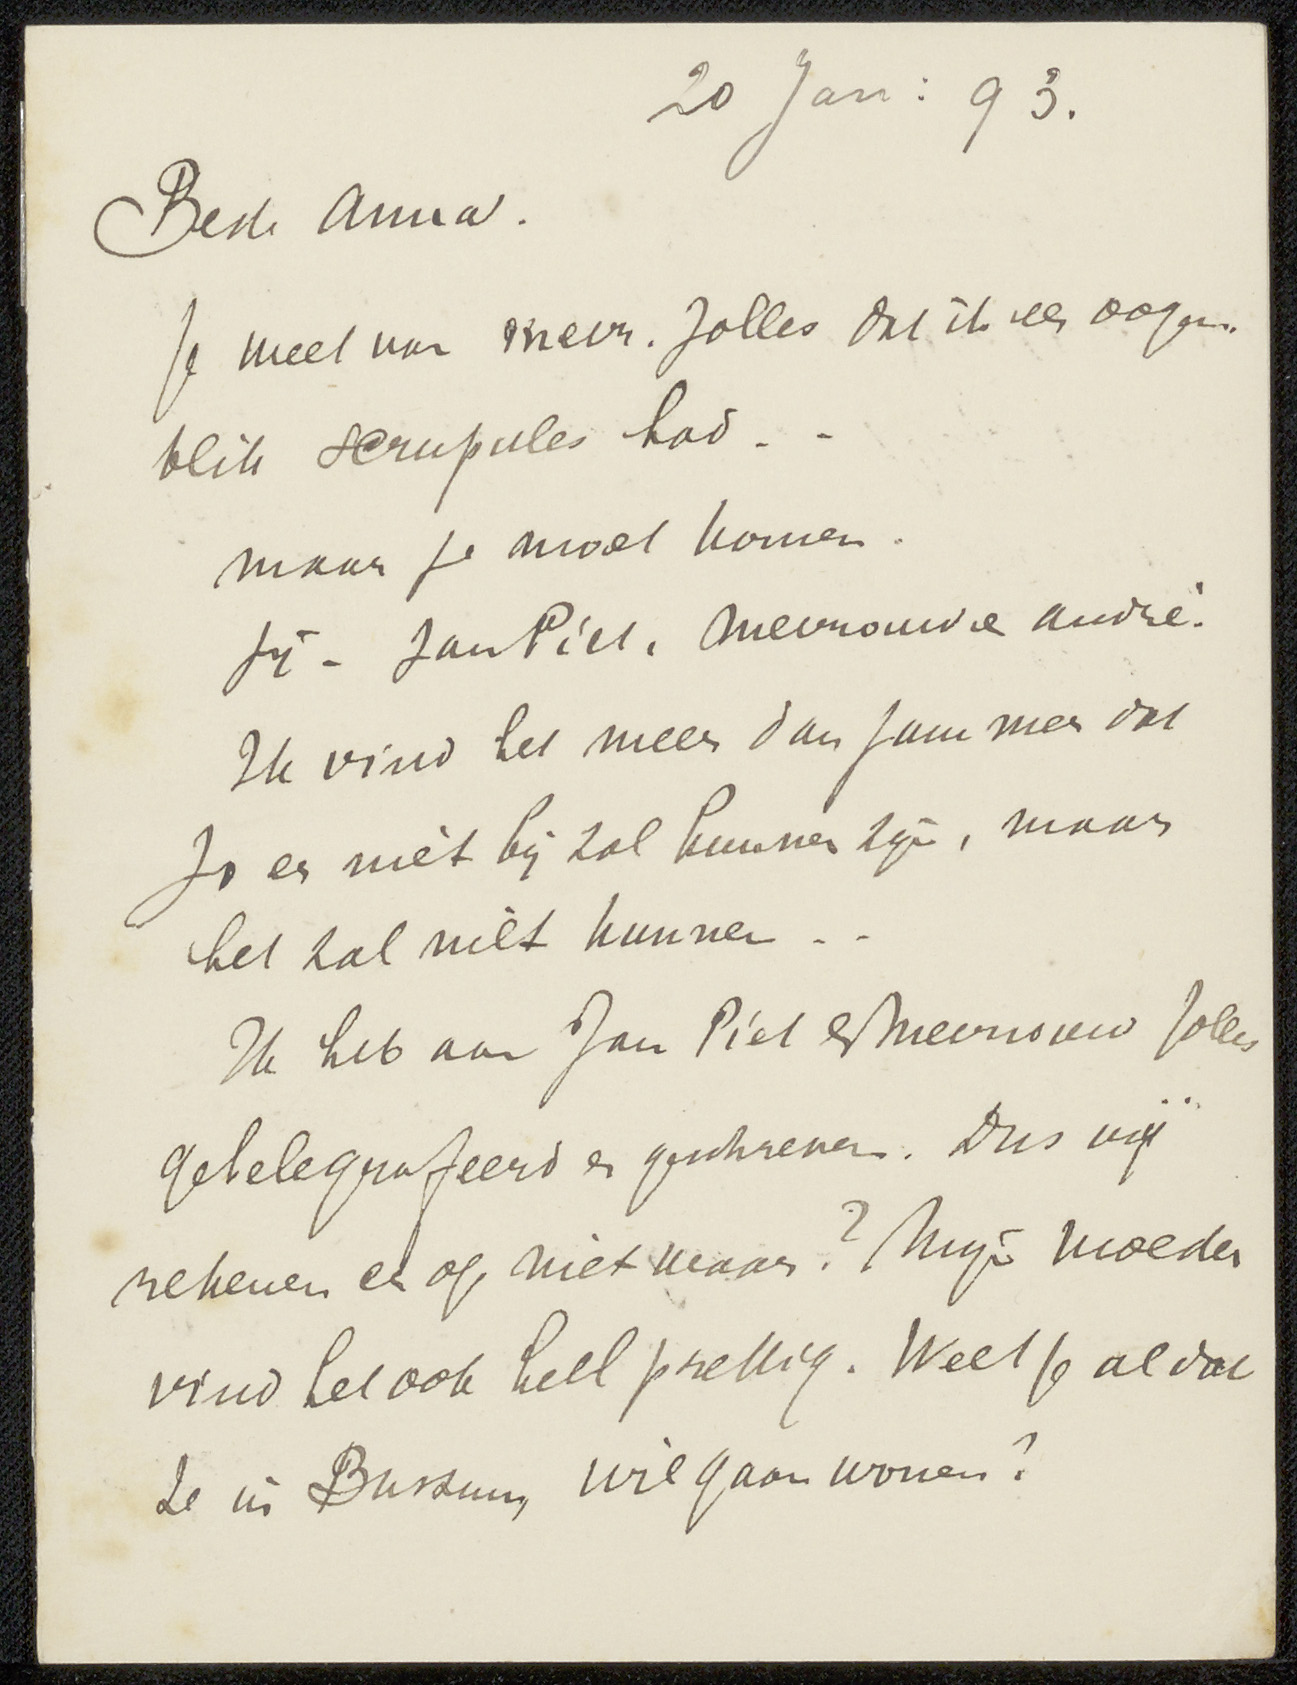 20 Jan: 93.
Beste Anna.
Je weet van mevr. Jolles dat ik een oogen-
blik scrupules had. -
maar je moet komen.
Jij - Jan Piet, Mevrouw en André.
Ik vind het meer dan jammer dat
Jo er niet bij zal kunnen zijn, maar
het zal niet kunnen - -
Ik heb aan Jan Piet & Mevrouw Jolles
getelegrafeerd en geschreven. Dus wij
rekenen er op, niet waar? Mijn moeder
vind het ook heel prettig. Weet je al dat
ze in Bussum wil gaan wonen?